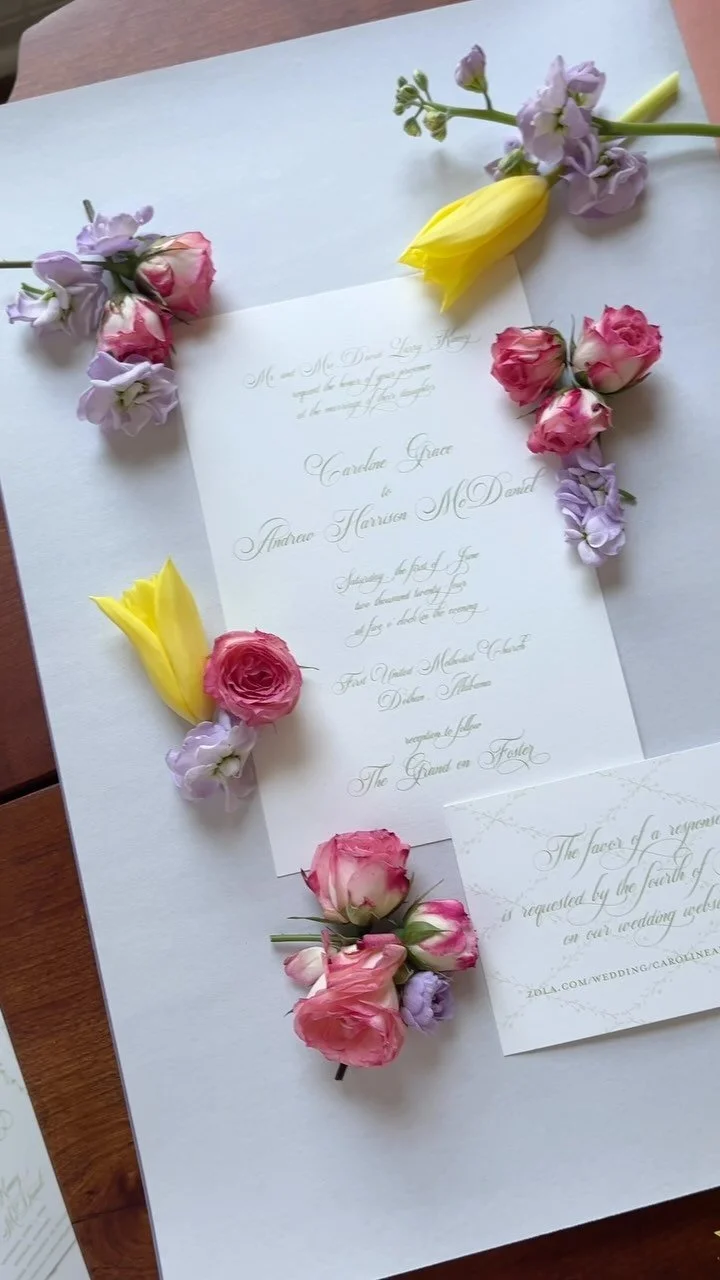 Mr. and Mrs. David Larry Kamy
request the honor of your presence
at the marriage of their daughter
Caroline Grace
to
Andrew Harrison McDaniel
Saturday, the first of June
two thousand twenty four
at five o' clock in the evening
First United Methodist Church
Dothan, Alabama
reception to follow
The Grand on Foster
The favor of a response
is requested by the fourth of
on our wedding
ZOLA.COM/WEDDING/